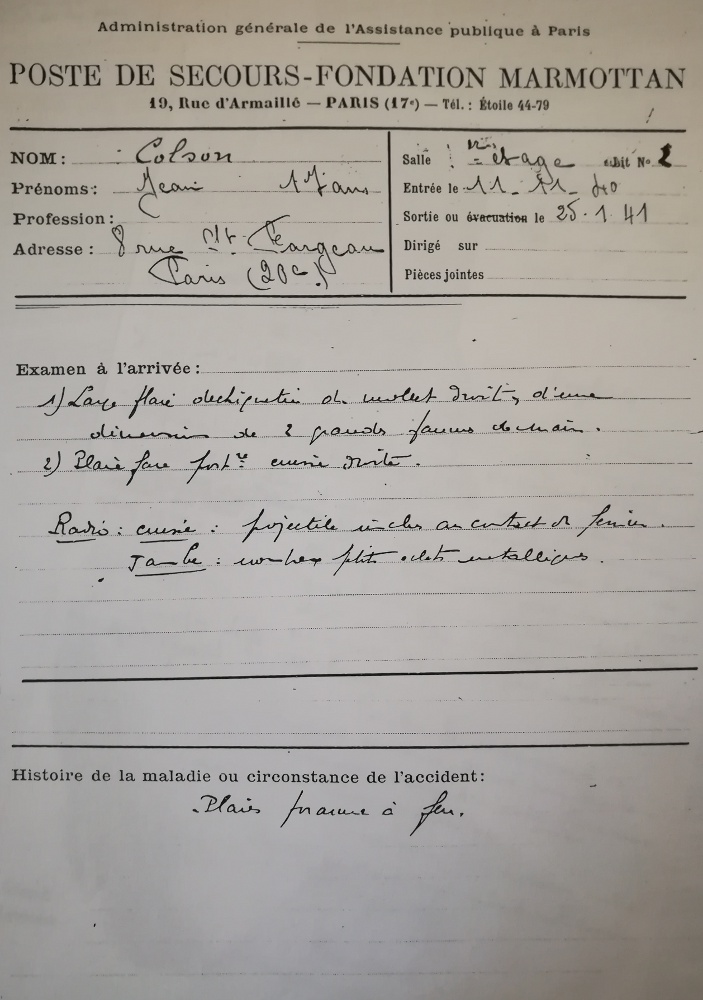 Administration générale de l'Assistance publique à Paris
POSTE DE SECOURS-FONDATION MARMOTTAN
19, Rue d'Armaillé — PARIS (17e) — Tél. : Étoile 44-79
NOM : Colson
Prénoms : Jean 17 ans
Profession :
Adresse : 8 rue St. Fargeau
Paris (20e)
Salle étage Lit No 2
Entrée le 11-11-40
Sortie ou évacuation le 25.1.41
Dirigé sur
Pièces jointes
Examen à l'arrivée :
1) Large plaie du mollet droit, d'une
dimension de 2 grands de main.
2) Plaie face postre cuisse droite.
Radio : cuisse : projectile inclus au contact du fémur.
Jambe : nombreux petits éclats métalliques.
Histoire de la maladie ou circonstance de l'accident :
Plaies par arme à feu.